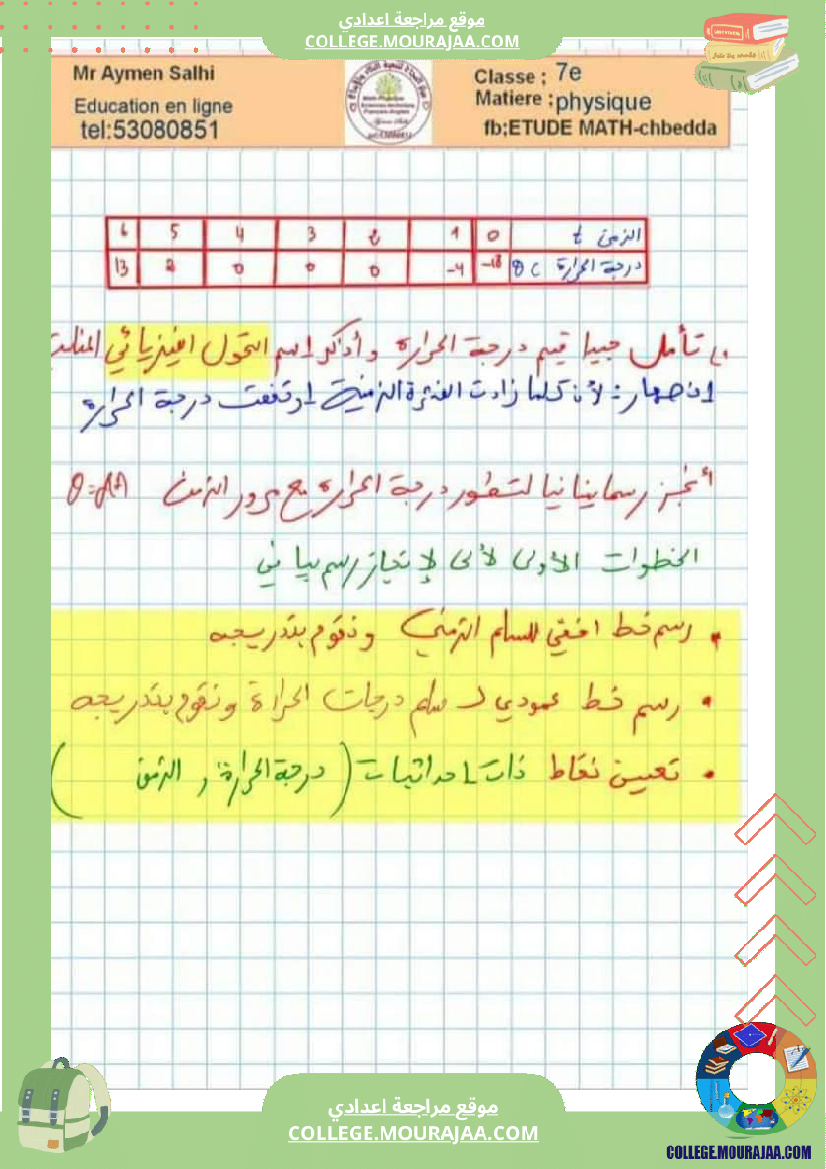 موقع مراجعة اعدادي
COLLEGE.MOURAJAA.COM
Mr Aymen Salhi
Education en ligne
tel:53080851
Classe ; 7e
Matiere :physique
fb;ETUDE MATH-chbedda
الزمن t 0 1 2 3 4 5 6
درجة الحرارة θ C -18 -4 0 0 0 2 13
تأمل جيدا قيم درجة الحرارة وأذكر اسم التحول الفيزيائي
انصهار: لأن كلما زادت الفترة الزمنية ارتفعت درجة الحرارة
أنجز رسما بيانيا لتطور درجة الحرارة مع مرور الزمن θ=f(t)
الخطوات الأولى لأى لإنجاز رسم بياني
• رسم خط افقي للسلم الزمني ونقوم بتدريجه
• رسم خط عمودي لـ سلم درجات الحرارة ونقوم بتدريجه
• تعيين نقاط ذات احداثيات (درجة الحرارة, الزمن)
موقع مراجعة اعدادي
COLLEGE.MOURAJAA.COM
COLLEGE.MOURAJAA.COM